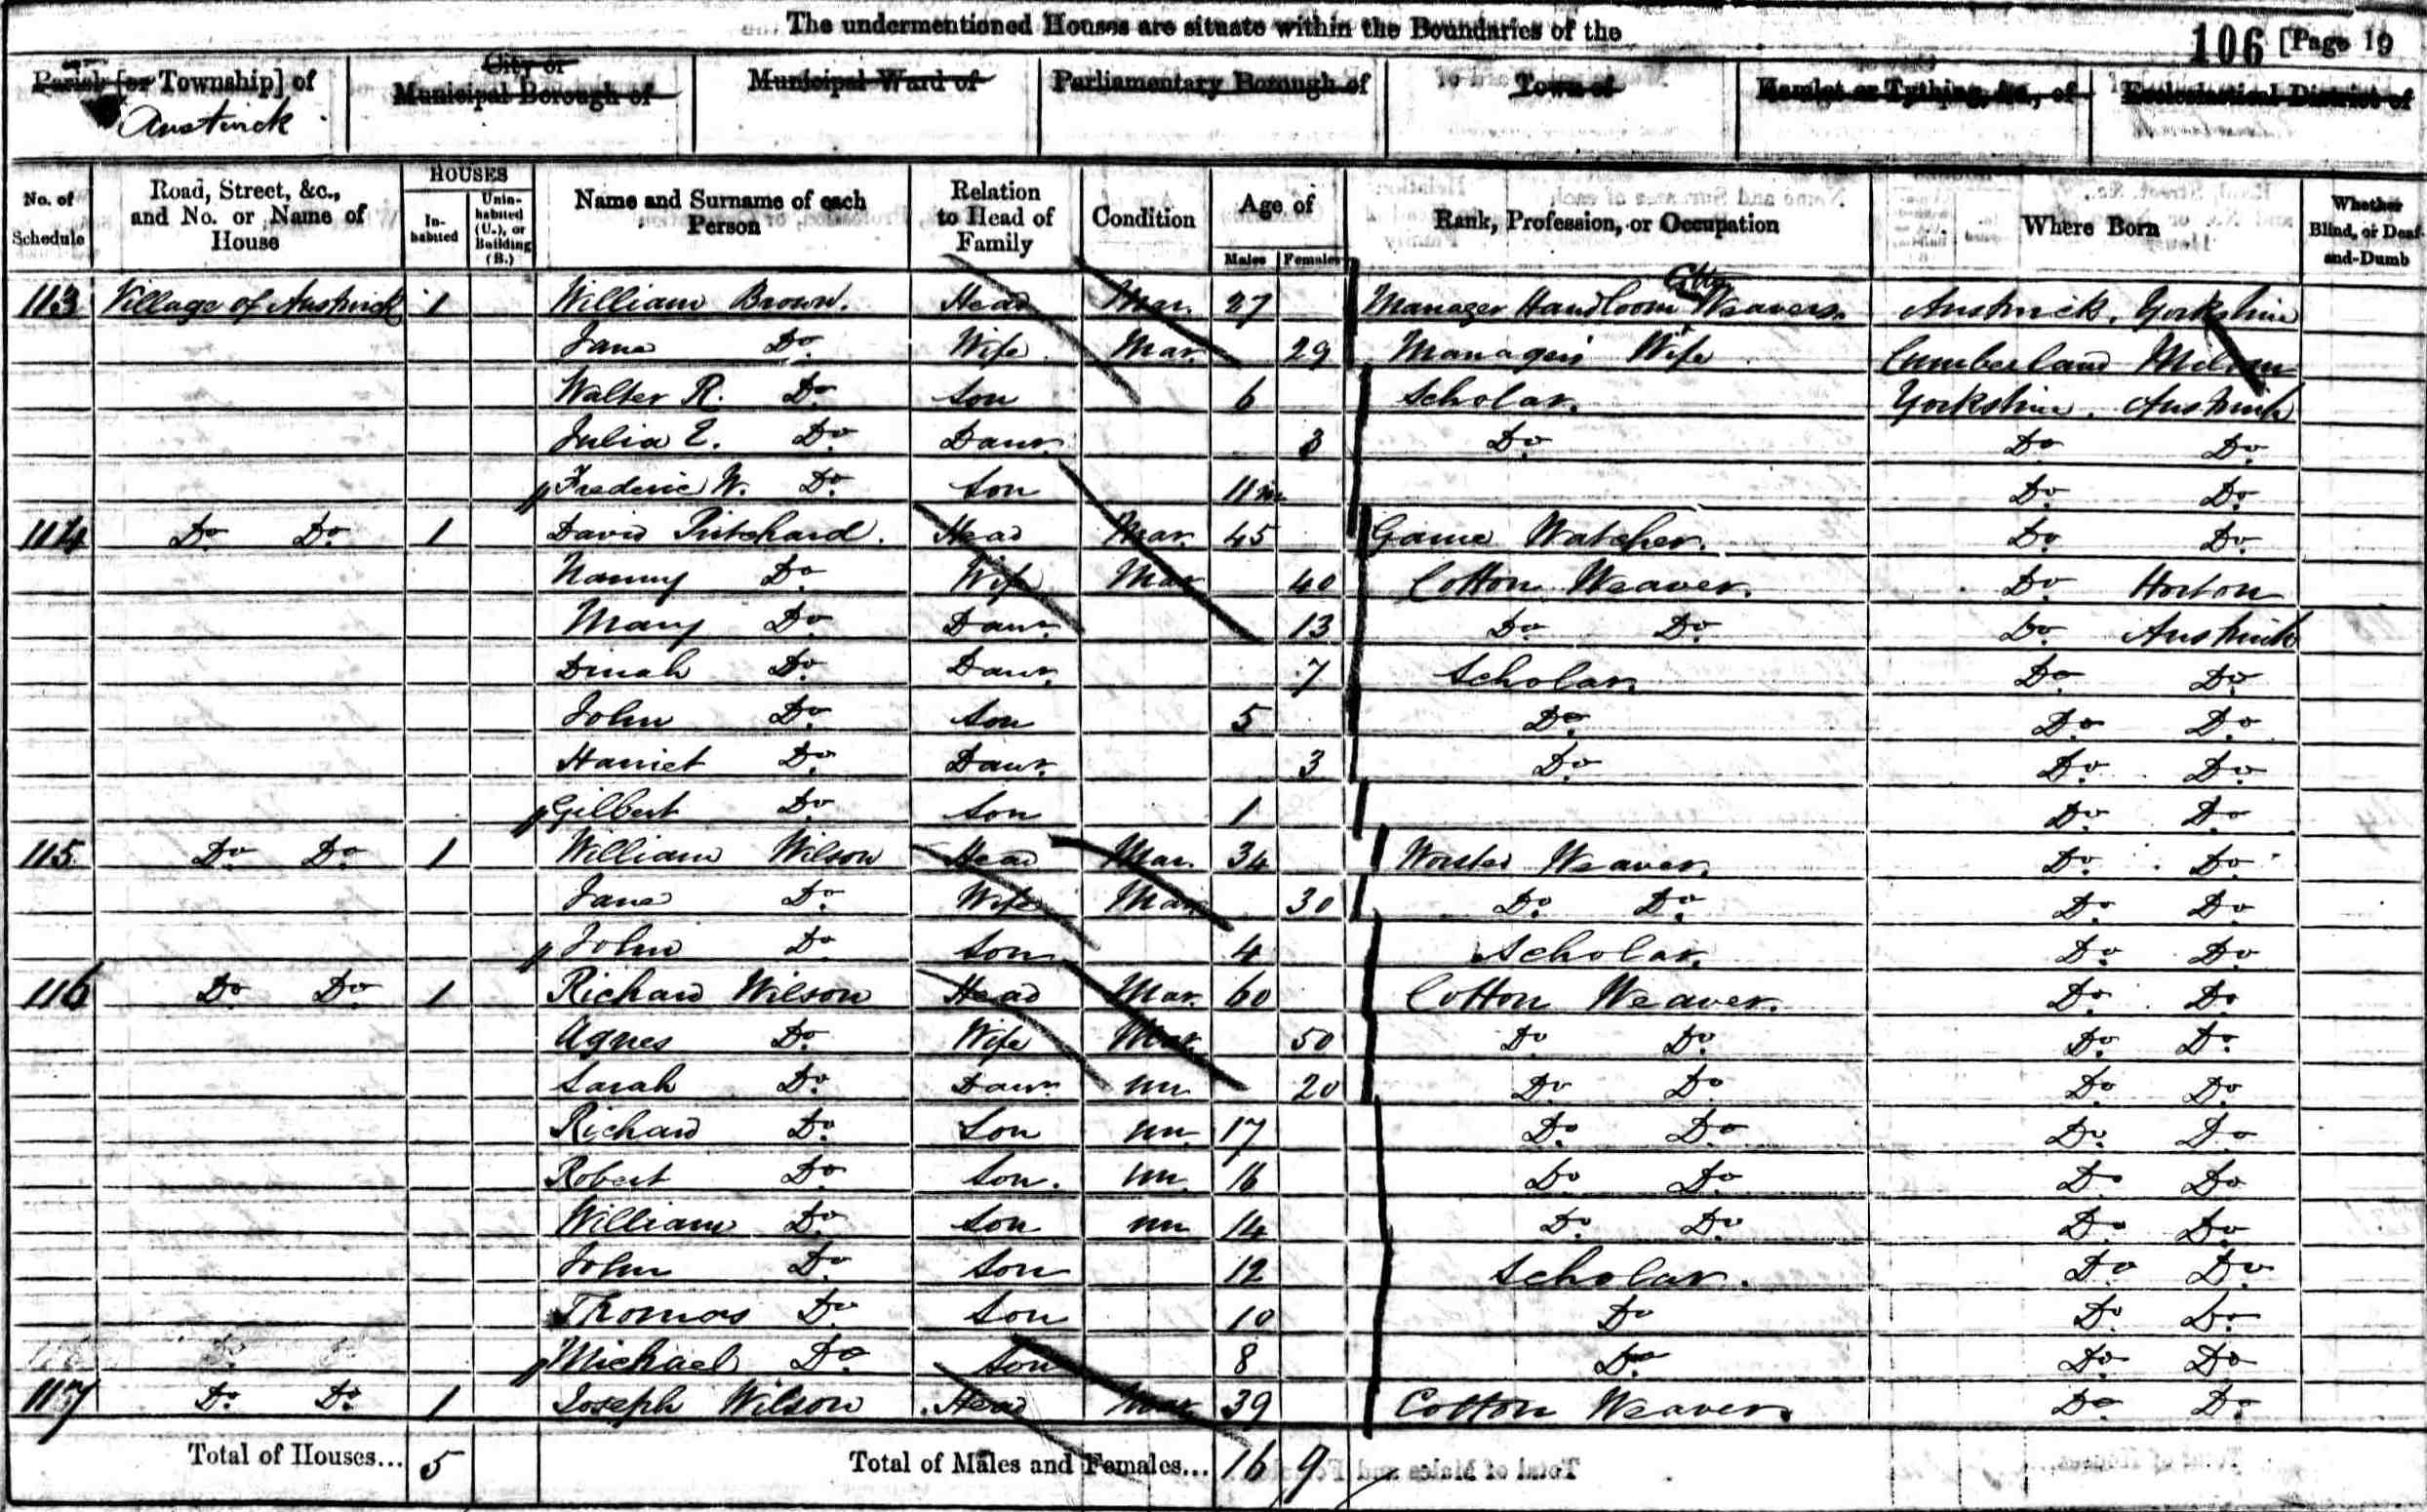 The undermentioned Houses are situate within the Boundaries of the
106 [Page 19
Parish [or Township] of
City or Municipal Borough of
Municipal Ward of
Parliamentary Borough of
Town of
Hamlet or Tything, &c., of
Ecclesiastical District of
Austwick
No. of Schedule
Road, Street, &c., and No. or Name of House
HOUSES
In-habited
Unin-habited (U.), or Building (B.)
Name and Surname of each Person
Relation to Head of Family
Condition
Age of
Males
Females
Rank, Profession, or Occupation
Where Born
Whether Blind, or Deaf-and-Dumb
113 Village of Austwick 1 William Brown. Head Mar. 27 Manager Handloom Cotton Weavers. Austwick, Yorkshire
Jane Do. Wife Mar. 29 Manager's Wife Cumberland
Walter R. Do. Son 6 Scholar. Yorkshire. Austwick
Julia E. Do. Daur. 3 Do. Do. Do.
Frederic W. Do. Son 11 m Do. Do.
114 Do. Do. 1 David Pritchard. Head Mar. 45 Game Watcher. Do. Do.
Nanny Do. Wife Mar 40 Cotton Weaver. Do. Horton
Mary Do. Daur. 13 Do. Do. Do. Austwick
Dinah Do. Daur. 7 Scholar. Do. Do.
John Do. Son 5 Do. Do. Do.
Harriet Do. Daur. 3 Do. Do. Do.
Gilbert Do. Son 1 Do. Do.
115 Do. Do. 1 William Wilson Head Mar. 34 Worsted Weaver. Do. Do.
Jane Do. Wife Mar. 30 Do. Do. Do. Do.
John Do. Son 4 Scholar. Do. Do.
116 Do. Do. 1 Richard Wilson Head Mar. 60 Cotton Weaver. Do. Do.
Agnes Do. Wife Mar. 50 Do. Do. Do. Do.
Sarah Do. Daur. un. 20 Do. Do. Do. Do.
Richard Do. Son un. 17 Do. Do. Do. Do.
Robert Do. Son. un. 16 Do. Do. Do. Do.
William Do. Son un 14 Do. Do. Do. Do.
John Do. Son 12 Scholar. Do. Do.
Thomas Do. Son 10 Do. Do. Do.
Michael Do. Son 8 Do. Do. Do.
117 Do. Do. 1 Joseph Wilson Head Mar. 39 Cotton Weaver. Do. Do.
Total of Houses... 5 Total of Males and Females... 16 9